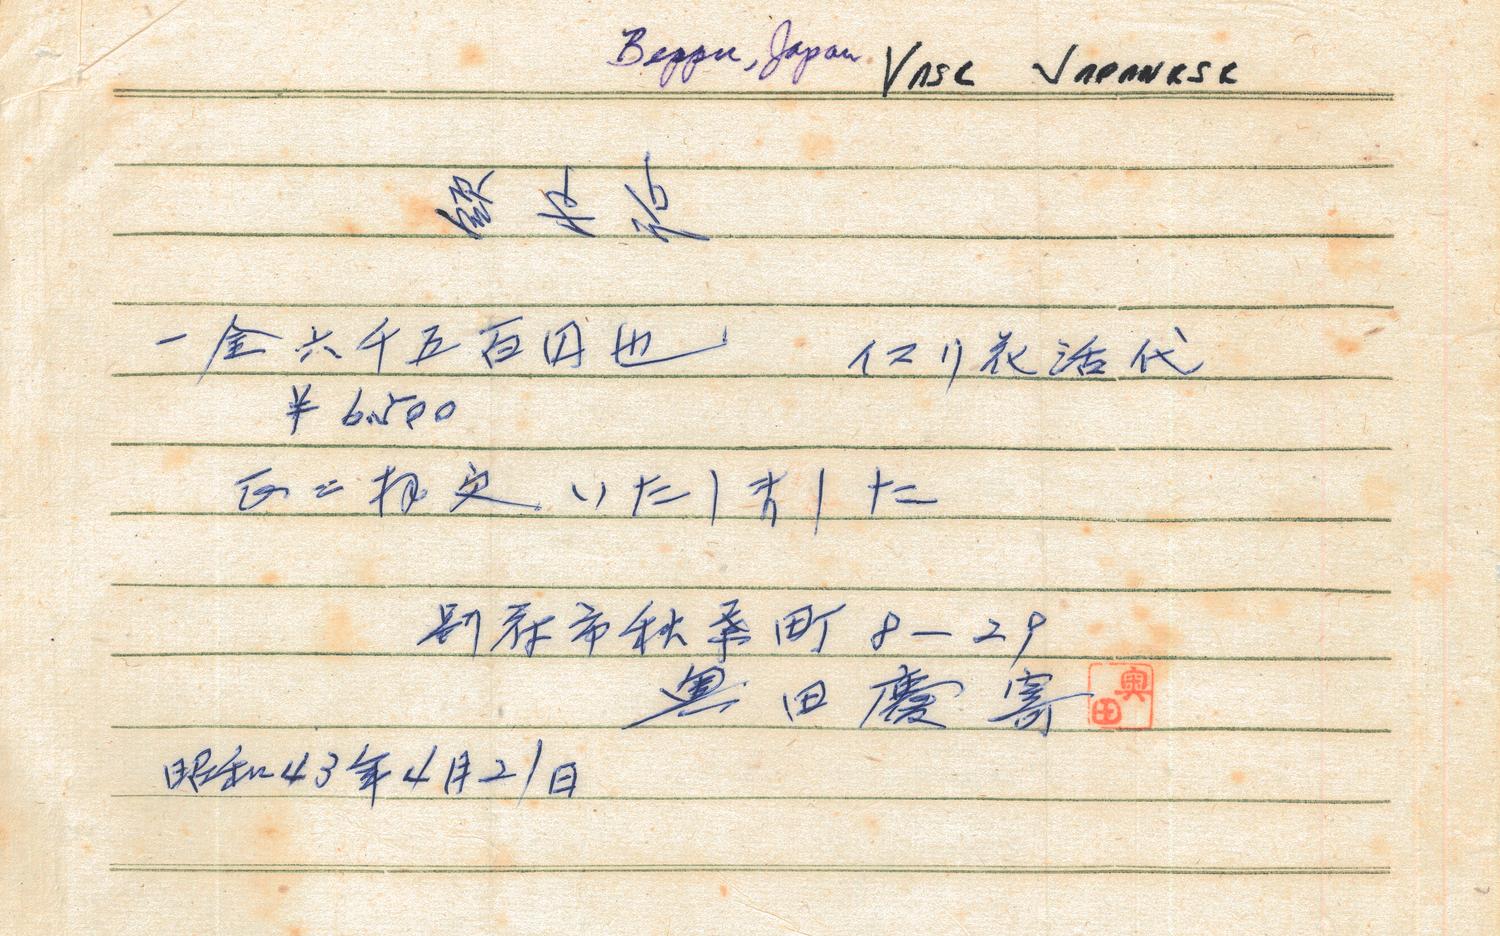 Beppu, Japan VASE JAPANESE
領収証
一金六千五百円也 イスリ花活代
¥6,500
正ニ領定いたしました
別府市秋葉町8-29
奥田慶 奥田
昭和43年4月21日